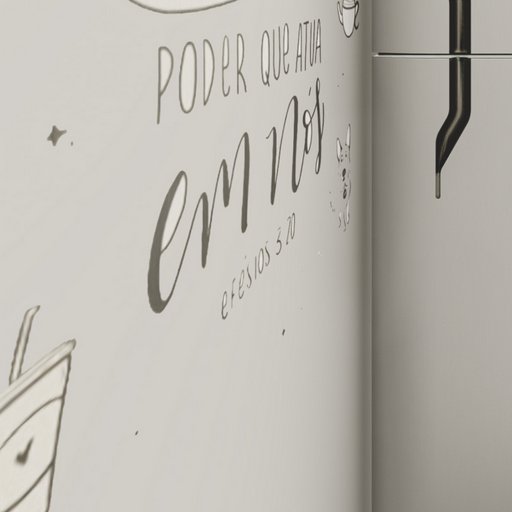 PODER QUE ATUA
em nós
efésios 3:20